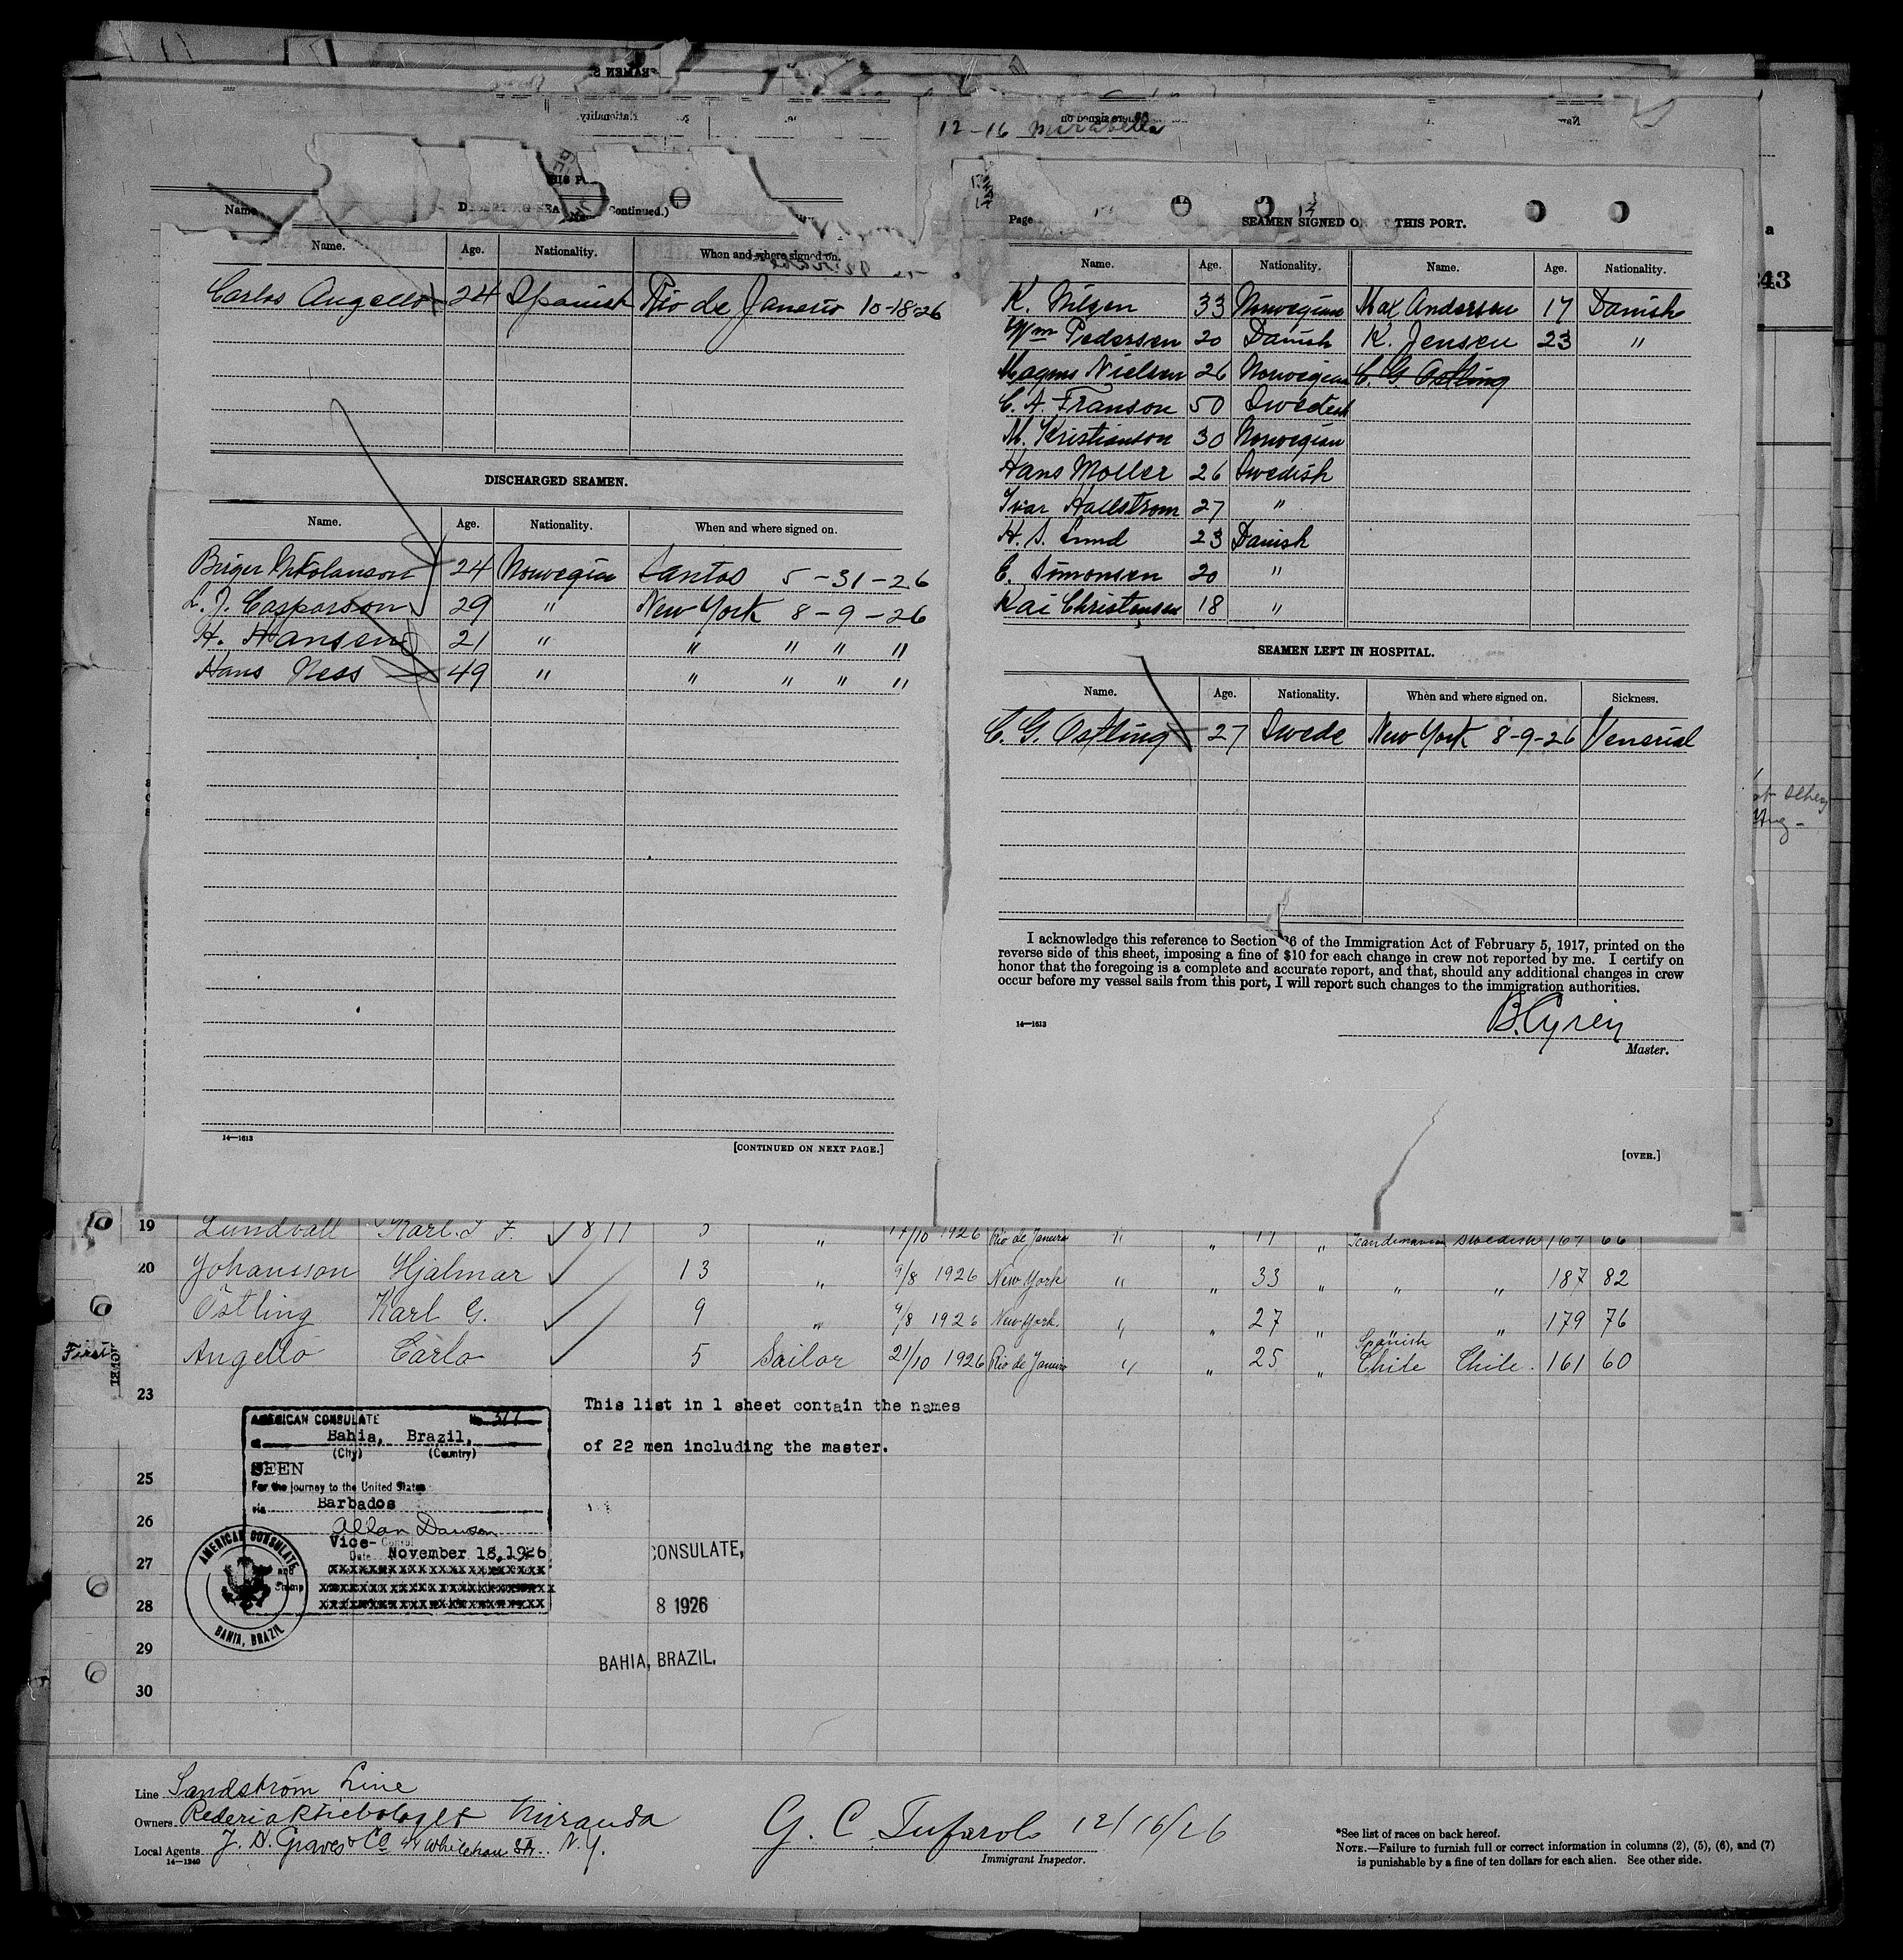 12-16 Mirabella
Name.
(Continued.)
Name. Age. Nationality. When and where signed on.
Carlos Angello 24 Spanish Rio de Janeiro 10-18-26
DISCHARGED SEAMEN.
Name. Age. Nationality. When and where signed on.
Birger Nikolanson 24 Norwegian Santos 5-31-26
L. J. Casparson 29 " New York 8-9-26
H. Hansen 21 " " " " "
Hans Ness 49 " " " " "
14—1613
[CONTINUED ON NEXT PAGE.]
Page
SEAMEN SIGNED O THIS PORT.
Name. Age. Nationality. Name. Age. Nationality.
K. Nilsen 33 Norwegian Max Andersen 17 Danish
Wm Pedersen 20 Danish K. Jensen 23 "
Magnus Nielsen 26 Norwegian C. G. Ostling
C. A. Franson 50 Swedish
M. Kristianson 30 Norwegian
Hans Moller 26 Swedish
Ivar Hallstrom 27 "
H. S. Lund 23 Danish
C. Simonsen 20 "
Kai Christensen 18 "
SEAMEN LEFT IN HOSPITAL.
Name. Age. Nationality. When and where signed on. Sickness.
C. G. Ostling 27 Swede New York 8-9-26 Venerial
I acknowledge this reference to Section 36 of the Immigration Act of February 5, 1917, printed on the
reverse side of this sheet, imposing a fine of $10 for each change in crew not reported by me. I certify on
honor that the foregoing is a complete and accurate report, and that, should any additional changes in crew
occur before my vessel sails from this port, I will report such changes to the immigration authorities.
14—1613
Master.
[OVER.]
19 Lundvall Karl. 17/10 1926 Rio de Janeiro " " " Scandinavian Swedish 167 66
20 Johansson Hjalmar 13 " 9/8 1926 New York " " 33 " " " 187 82
Östling Karl G. 9 " 9/8 1926 New York. " " 27 " " " 179 76
First Angello Carlo 5 Sailor 21/10 1926 Rio de Janeiro " " 25 " Spanish Chile Chile. 161 60
23
This list in 1 sheet contain the names
of 22 men including the master.
AMERICAN CONSULATE No 317
at Bahia, Brazil,
(City) (Country)
SEEN
For the journey to the United States
via Barbados
Allan Dawson
Vice- Consul
Date November 18, 1926
AMERICAN CONSULATE
BAHIA, BRAZIL
25
26
27
28
29
30
CONSULATE,
8 1926
BAHIA, BRAZIL.
Line Sandström Line
Owners Rederiaktiebolaget Miranda
Local Agents J. H. Graves & Co Whitehall St. N.Y.
14—1240
G. C. Tufarolo 12/16/26
Immigrant Inspector.
*See list of races on back hereof.
NOTE.—Failure to furnish full or correct information in columns (2), (5), (6), and (7)
is punishable by a fine of ten dollars for each alien. See other side.